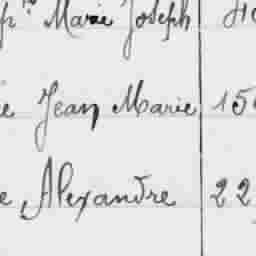 Marie Joseph
e Jean Marie 15
e Alexandre 22